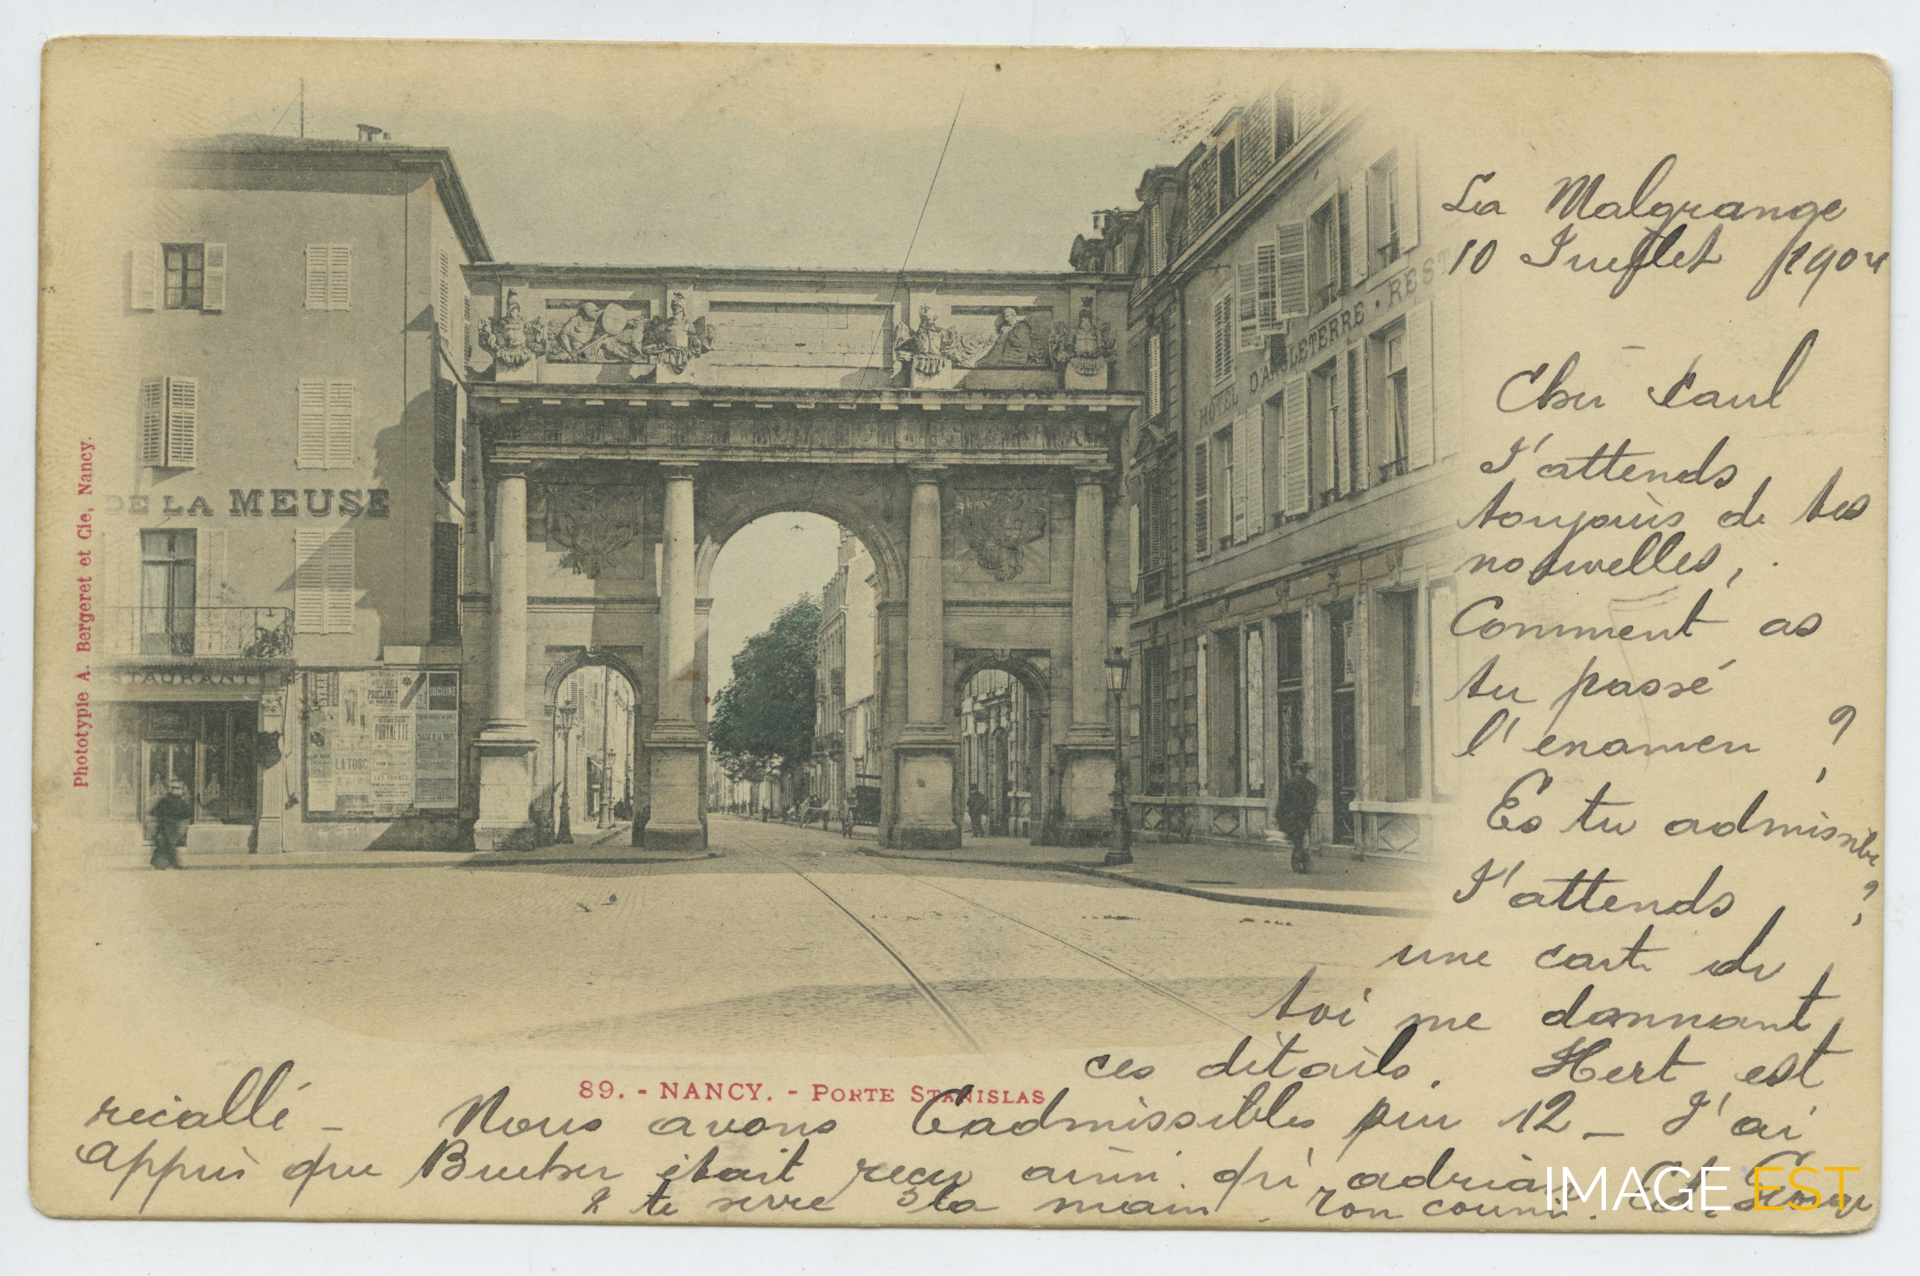 DE LA MEUSE
STAURANT
HOTEL D'ANGLETERRE · REST
LUCILINE
LA TOSC
Phototypie A. Bergeret et Cie, Nancy.
89. - NANCY. - PORTE STANISLAS
La Malgrange
10 Juillet 1904
Cher Paul
J'attends
toujours de tes
nouvelles,
Comment as
tu passé
l'examen ?
Es tu admissible ?
J'attends
une carte de
toi me donnant
ces détails. Hert est
recallé - Nous avons 6 admissibles sur 12 - J'ai
appris que était reçu ainsi qu'
te serre la main. Ton cousin.
IMAGE EST